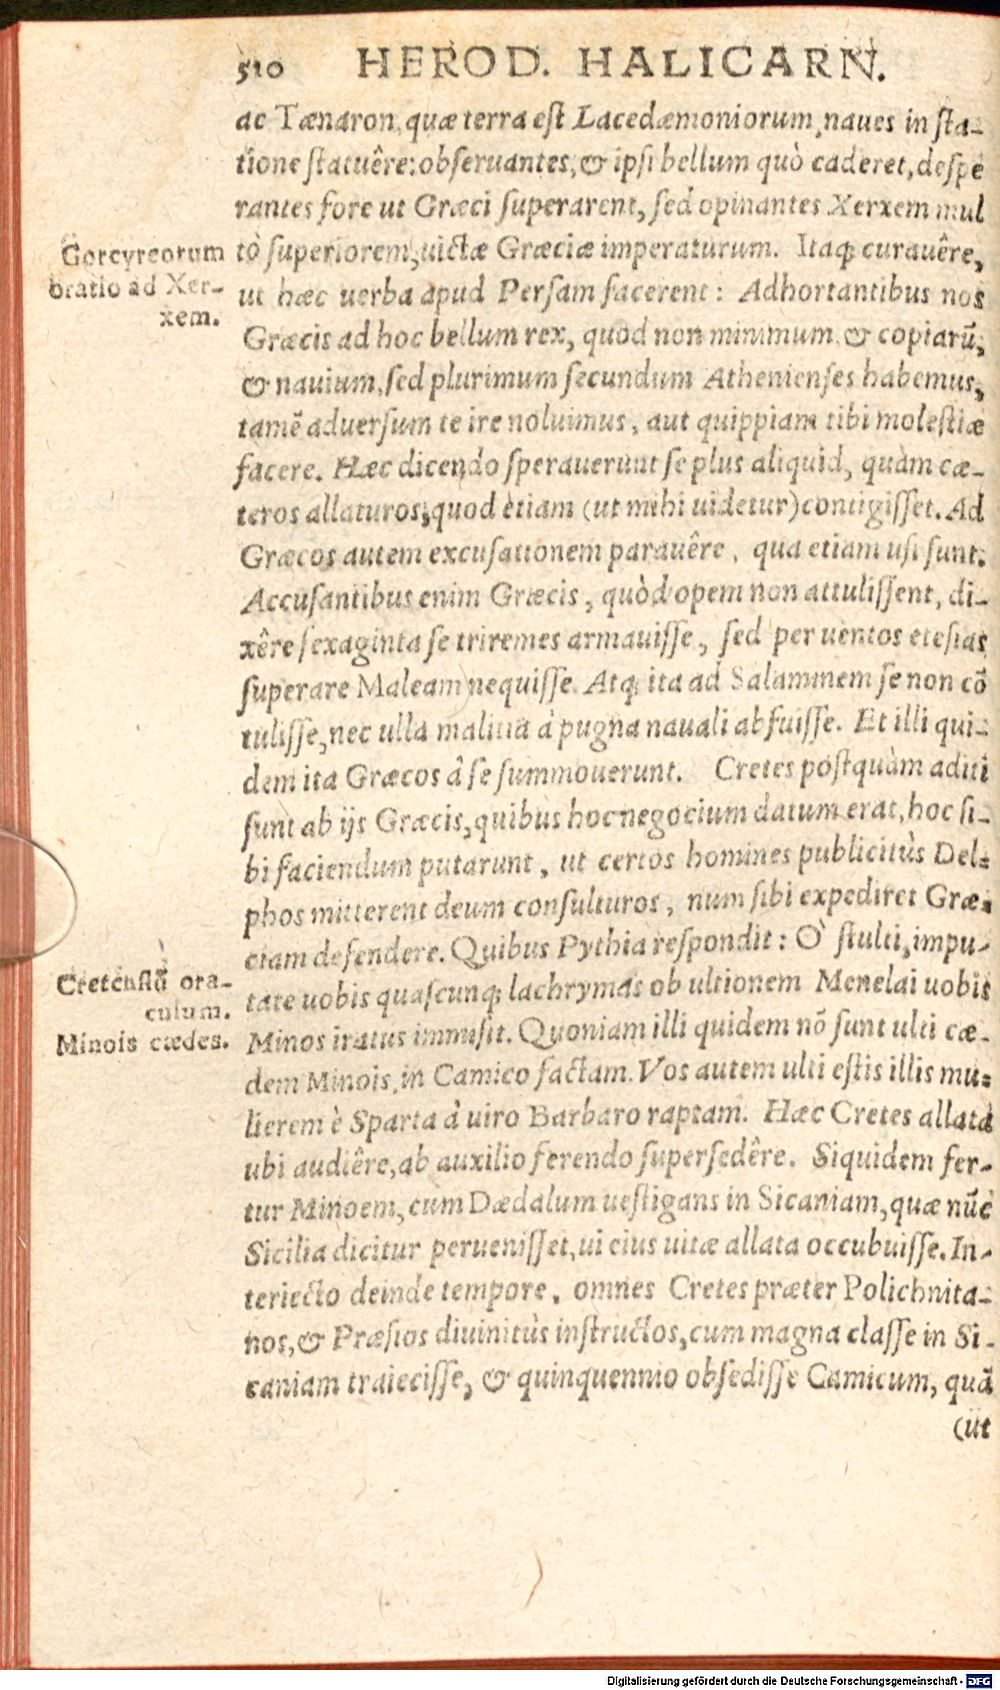 510 HEROD. HALICARN.
ac Tænaron, quæ terra est Lacedæmoniorum, naues in sta-
tione statuêre: obseruantes, & ipsi bellum quò caderet, despe
rantes fore ut Græci superarent, sed opinantes Xerxem mul
tò superiorem, uictæ Græciæ imperaturum. Itaq; curauêre,
ut hæc uerba apud Persam facerent: Adhortantibus nos
Græcis ad hoc bellum rex, quod non minimum & copiarũ,
& nauium, sed plurimum secundum Athenienses habemus,
tamẽ aduersum te ire noluimus, aut quippiam tibi molestiæ
facere. Hæc dicendo sperauerunt se plus aliquid, quàm cæ-
teros allaturos, quod etiam (ut mihi uidetur) contigisset. Ad
Græcos autem excusationem parauêre, qua etiam usi sunt.
Accusantibus enim Græcis, quòd opem non attulissent, di-
xêre sexaginta se triremes armauisse, sed per uentos etesias
superare Maleam nequisse. Atq; ita ad Salaminem se non cõ
tulisse, nec ulla malitia à pugna nauali abfuisse. Et illi qui-
dem ita Græcos â se summouerunt. Cretes postquàm aditi
sunt ab ijs Græcis, quibus hoc negocium datum erat, hoc si-
bi faciendum putarunt, ut certos homines publicitùs Del-
phos mitterent deum consulturos, num sibi expediret Græ-
ciam defendere. Quibus Pythia respondit: Ò stulti, impu-
tate uobis quascunq; lachrymas ob ultionem Menelai uobis
Minos iratus immisit. Quoniam illi quidem nõ sunt ulti cæ-
dem Minois, in Camico factam. Vos autem ulti estis illis mu-
lierem è Sparta à uiro Barbaro raptam. Hæc Cretes allata
ubi audiêre, ab auxilio ferendo supersedêre. Siquidem fer-
tur Minoem, cum Dædalum uestigans in Sicaniam, quæ nũc
Sicilia dicitur peruenisset, ui eius uitæ allata occubuisse. In-
teriecto deinde tempore, omnes Cretes præter Polichnita-
nos, & Præsios diuinitùs instructos, cum magna classe in Si-
caniam traiecisse, & quinquennio obsedisse Camicum, quã
(ut
Corcyreorum
oratio ad Xer-
xem.
Cretensiũ ora-
culum.
Minois cædes.
Digitalisierung gefördert durch die Deutsche Forschungsgemeinschaft - DFG